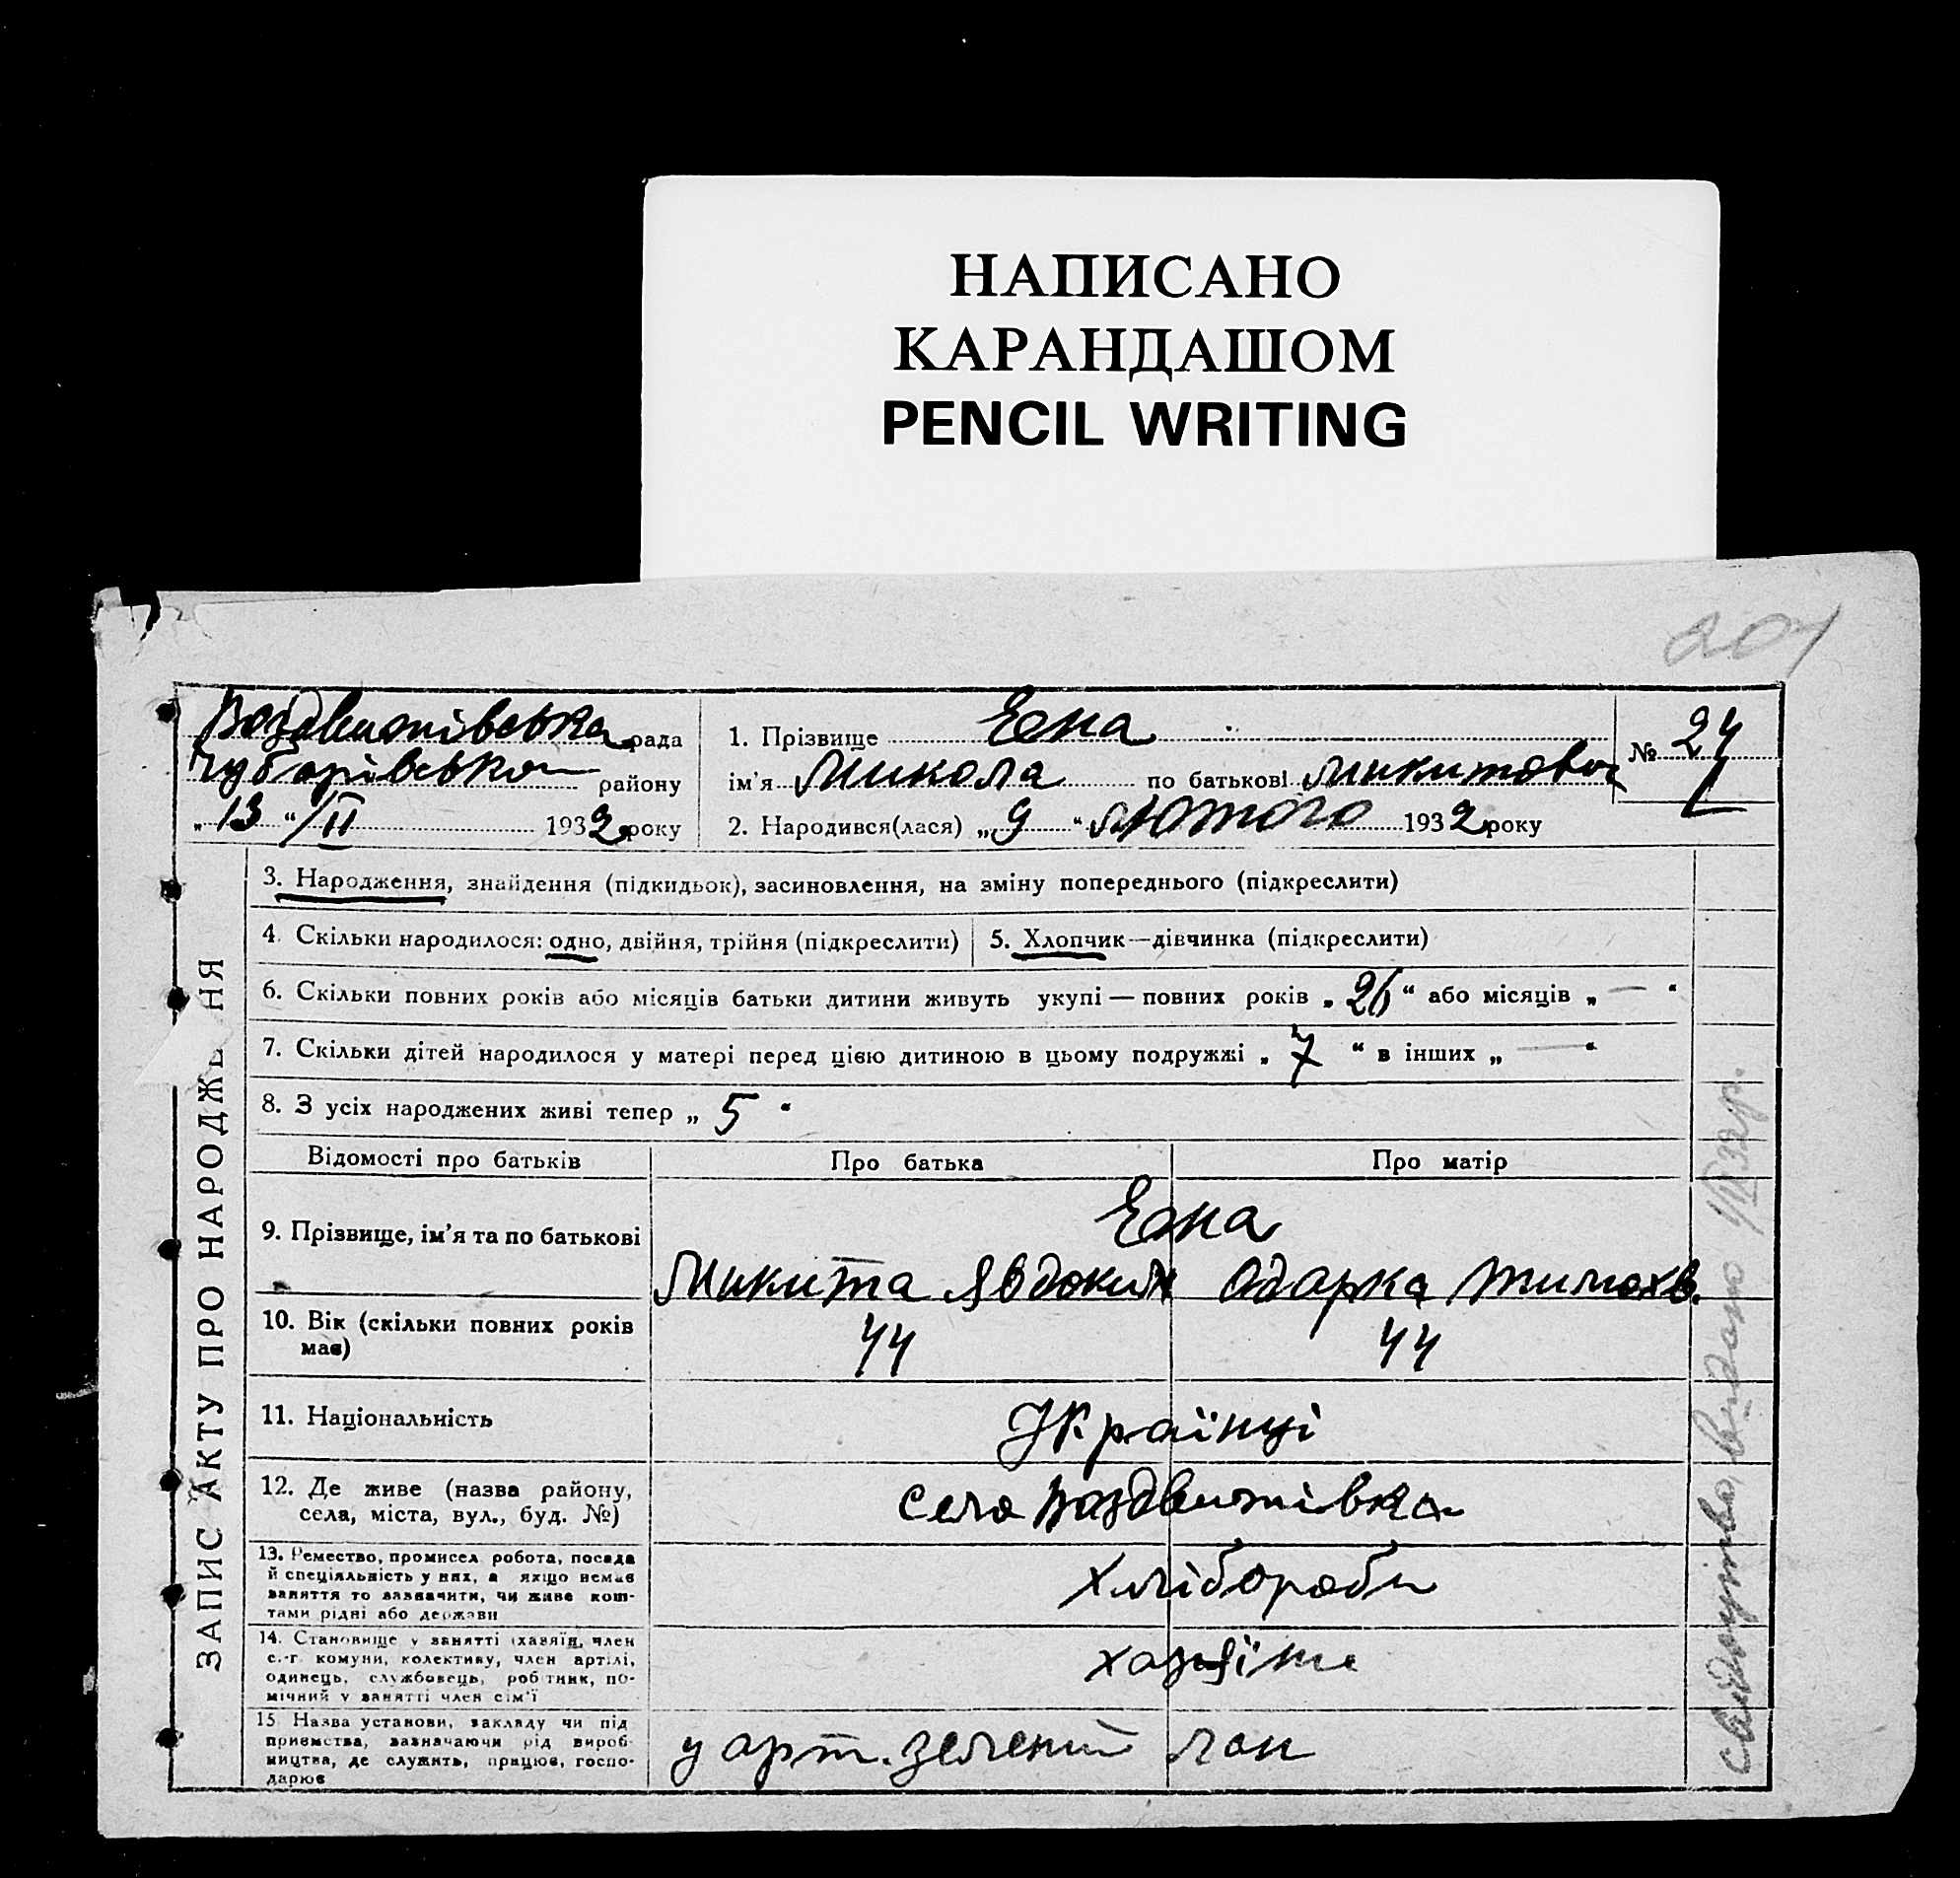 НАПИСАНО
КАРАНДАШОМ
PENCIL WRITING
207
Воздвижівська рада
Чубарівського району
„ 13 “ /II 1932 року
1. Прізвище Єсна
ім'я Микола по батькові Микитович
2. Народився(лася) „ 9 “ лютого 1932 року
№ 24
ЗАПИС АКТУ ПРО НАРОДЖЕ НЯ
3. Народження, знайдення (підкидьок), засиновлення, на зміну попереднього (підкреслити)
4. Скільки народилося: одно, двійня, трійня (підкреслити)
5. Хлопчик—дівчинка (підкреслити)
6. Скільки повних років або місяців батьки дитини живуть укупі — повних років „ 26 “ або місяців „ — “
7. Скільки дітей народилося у матері перед цією дитиною в цьому подружжі „ 7 “ в інших „ — “
8. З усіх народжених живі тепер „ 5 “
Відомості про батьків
Про батька
Про матір
9. Прізвище, ім'я та по батькові
Єсна
Микита Явдоким
Одарка Тимохв.
10. Вік (скільки повних років
має)
44
44
11. Національність
Українці
12. Де живе (назва району,
села, міста, вул., буд. №)
село Воздвижівка
13. Ремество, промисел робота, посада
й спеціяльність у них, а якщо немає
заняття то зазначити, чи живе кош-
тами рідні або держави
Хлібороби
14. Становище у занятті (хазяїн, член
с.-г. комуни, колективу, член артілі,
одинець, службовець, робітник, по-
мічний у занятті член сім'ї
хазяїни
15. Назва установи, закладу чи під
приємства, зазначаючи рід вироб-
ництва, де служить, працює, госпо-
дарює
у арт. зелений лан
свидоцтво видано 1932 р.